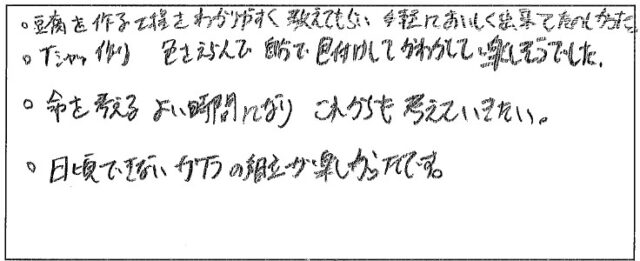 ○ 豆腐を作る工程をわかりやすく教えてもらい 手軽においしく出来てたのしかった
○ Tシャツ作り 色をえらんで 自分で色付けしてかわかして楽しそうでした。
○ 命を考える よい時間になり これからも考えていきたい。
○ 日頃できない ガプラの組立が楽しかったです。